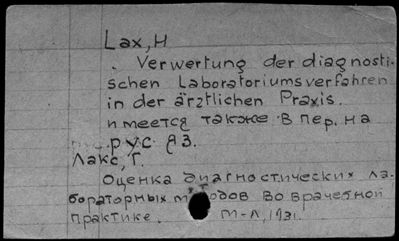 Lax, H
. Verwertung der diagnosti-
schen Laboratoriumsverfahren
in der ärztlichen Praxis.
имеется также в пер. на
рус яз.
Лакс, Г.
Оценка диагностических ла-
бораторных методов во врачебной
практике. М-Л, 1931.